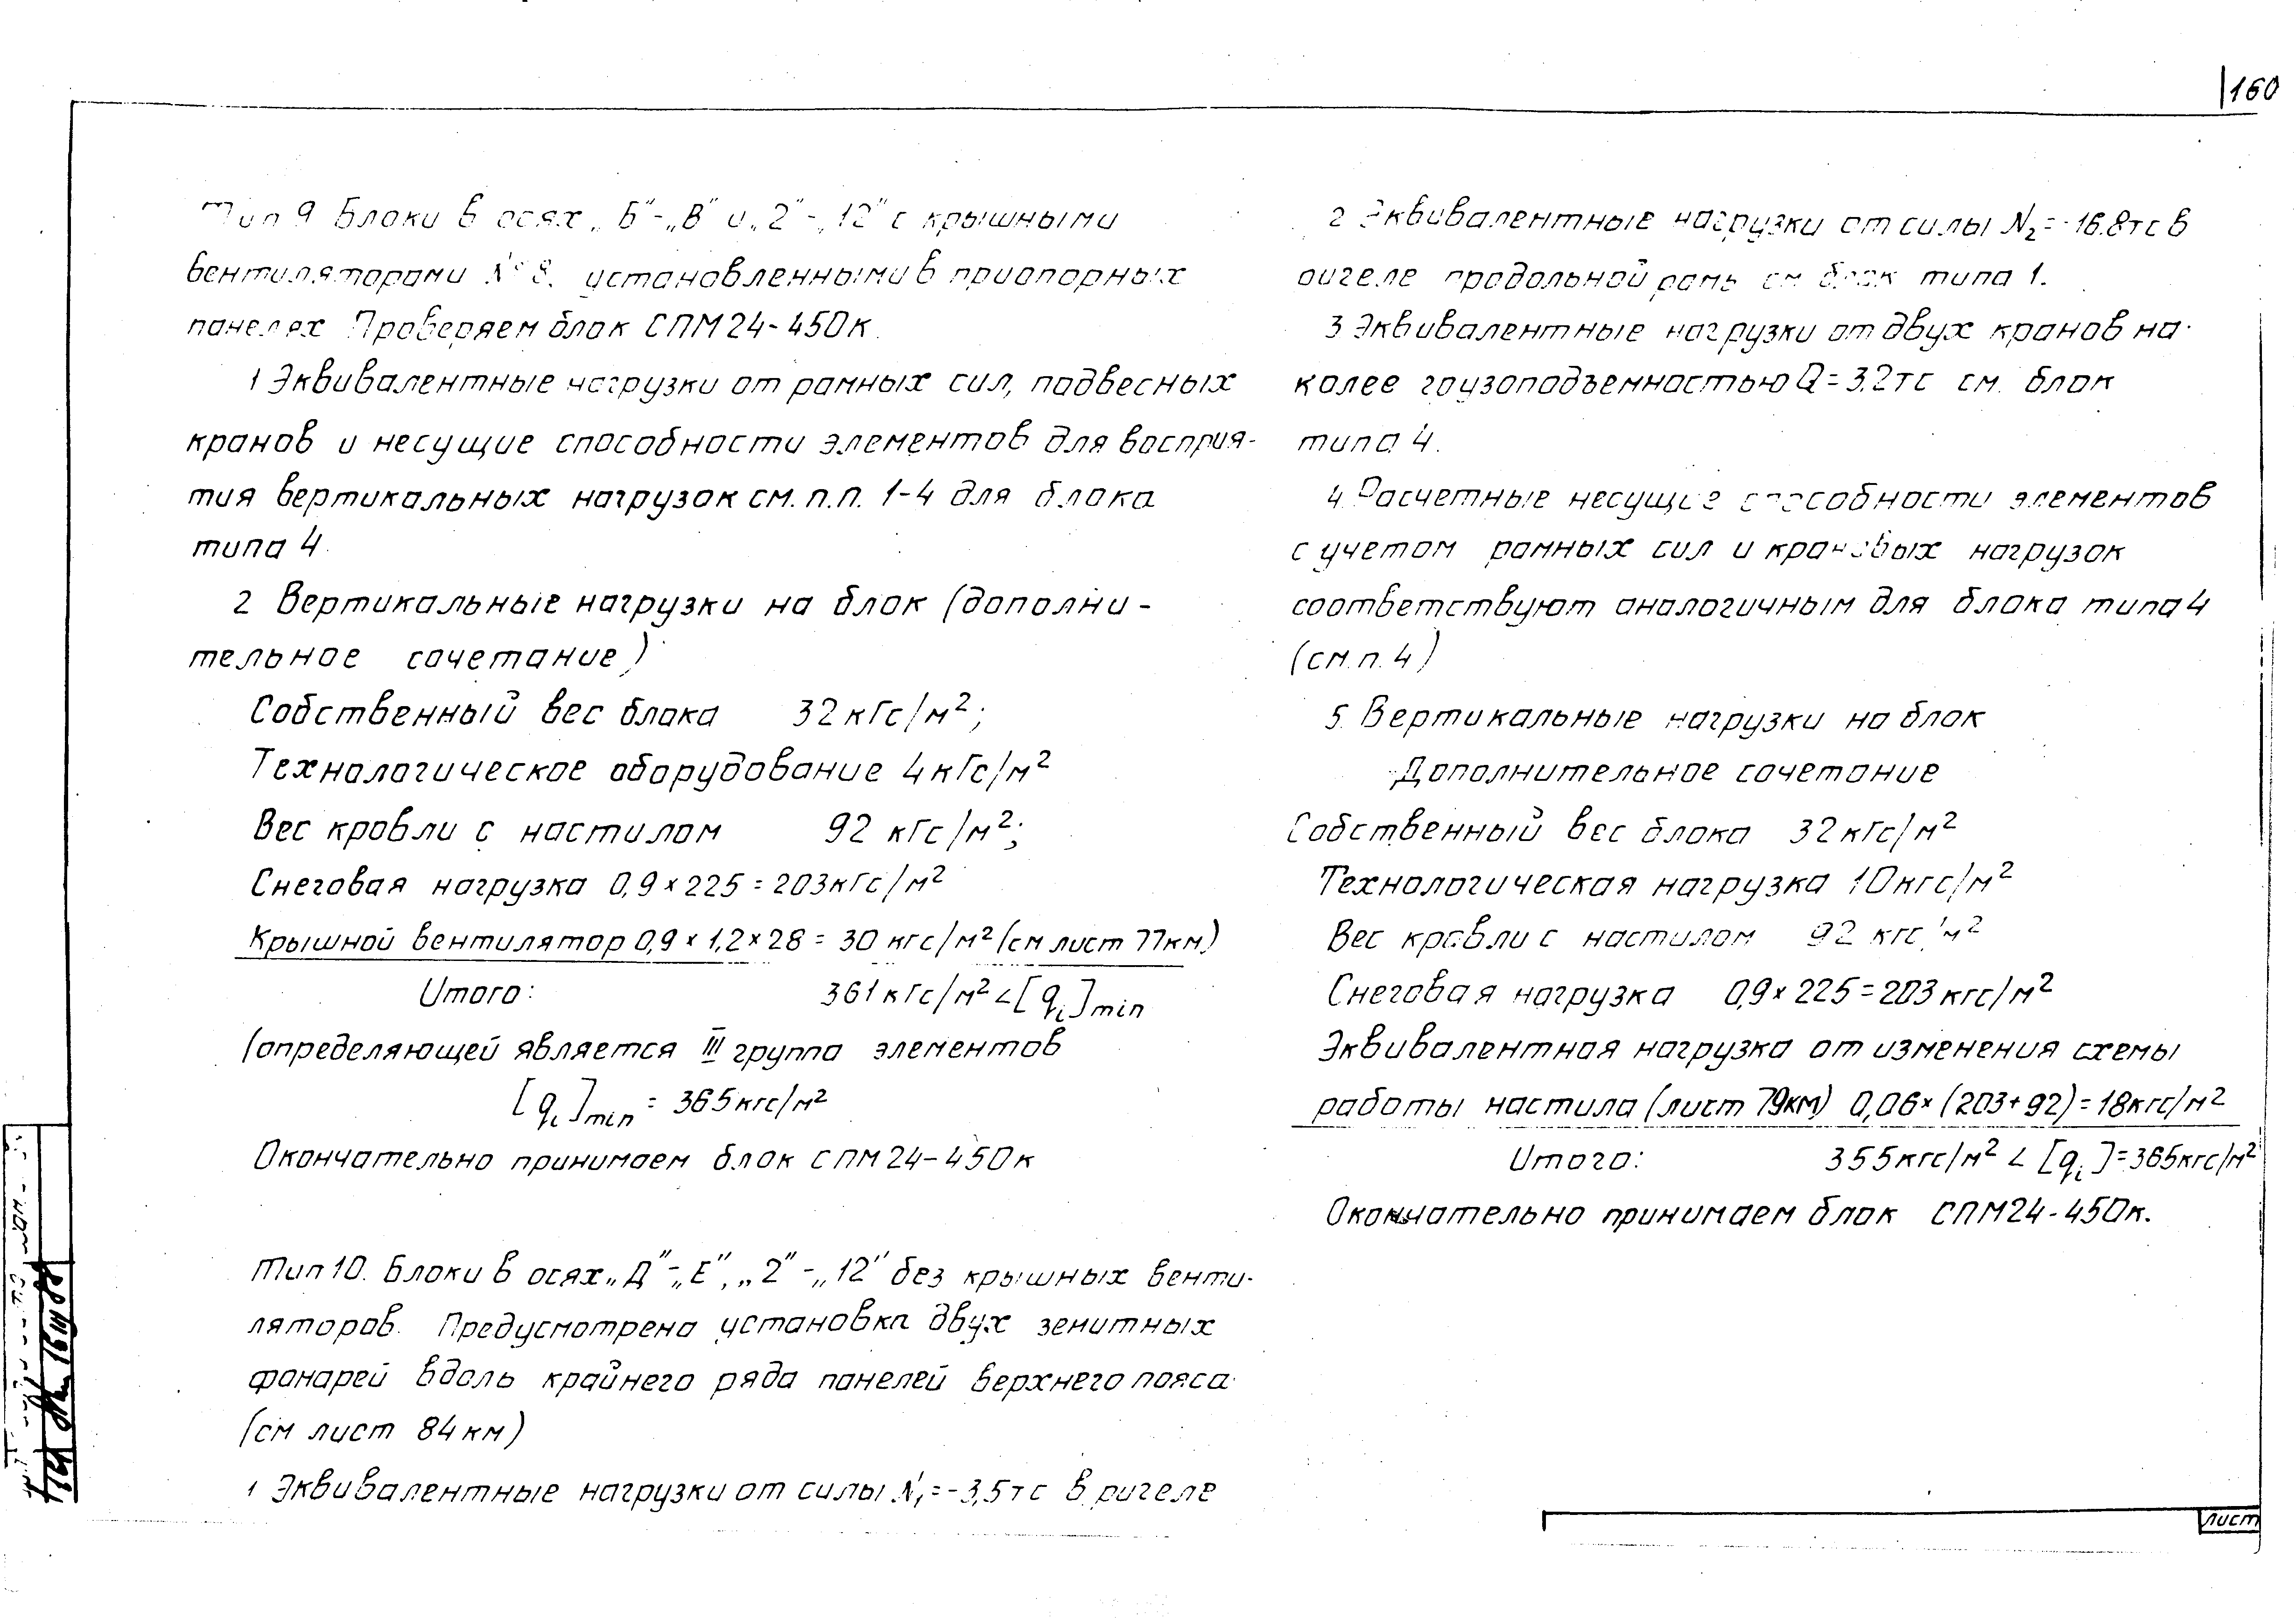 160
Тип 9 Блоки в осях „Б"-„В" и „2"-„12" с крышными
вентиляторами №8, установленными в приопорных
панелях Проверяем блок СПМ24-450к.
1 Эквивалентные нагрузки от рамных сил, подвесных
кранов и несущие способности элементов для восприя-
тия вертикальных нагрузок см. п.п. 1-4 для блока
типа 4.
2 Вертикальные нагрузки на блок (дополни-
тельное сочетание)
Собственный вес блока 32 кГс/м²;
Технологическое оборудование 4 кГс/м²
Вес кровли с настилом 92 кГс/м²;
Снеговая нагрузка 0,9×225=203 кГс/м²
Крышной вентилятор 0,9×1,2×28=30 кгс/м² (см лист 77км)
Итого: 361 кГс/м² < [qi]min
(определяющей является III группа элементов
[qi]min = 365 кгс/м²
Окончательно принимаем блок СПМ24-450к
Тип 10. Блоки в осях „Д"-„Е", „2"-„12" без крышных венти-
ляторов. Предусмотрена установка двух зенитных
фонарей вдоль крайнего ряда панелей верхнего пояса
(см лист 84 км)
1 Эквивалентные нагрузки от силы N₁=-3,5тс в ригеле
2 Эквивалентные нагрузки от силы N₂=-16.8тс в
ригеле продольной рамы см блок типа 1.
3 Эквивалентные нагрузки от двух кранов на
колее грузоподъемностью Q=3.2тс см. блок
типа 4.
4. Расчетные несущие способности элементов
с учетом рамных сил и крановых нагрузок
соответствуют аналогичным для блока типа 4
(см. п. 4)
5. Вертикальные нагрузки на блок
Дополнительное сочетание
Собственный вес блока 32 кГс/м²
Технологическая нагрузка 10 кгс/м²
Вес кровли с настилом 92 кгс/м²
Снеговая нагрузка 0,9×225=203 кгс/м²
Эквивалентная нагрузка от изменения схемы
работы настила (лист 79км) 0,06×(203+92)=18кгс/м²
Итого: 355кгс/м² < [qi]=365кгс/м²
Окончательно принимаем блок СПМ24-450к.
Лист